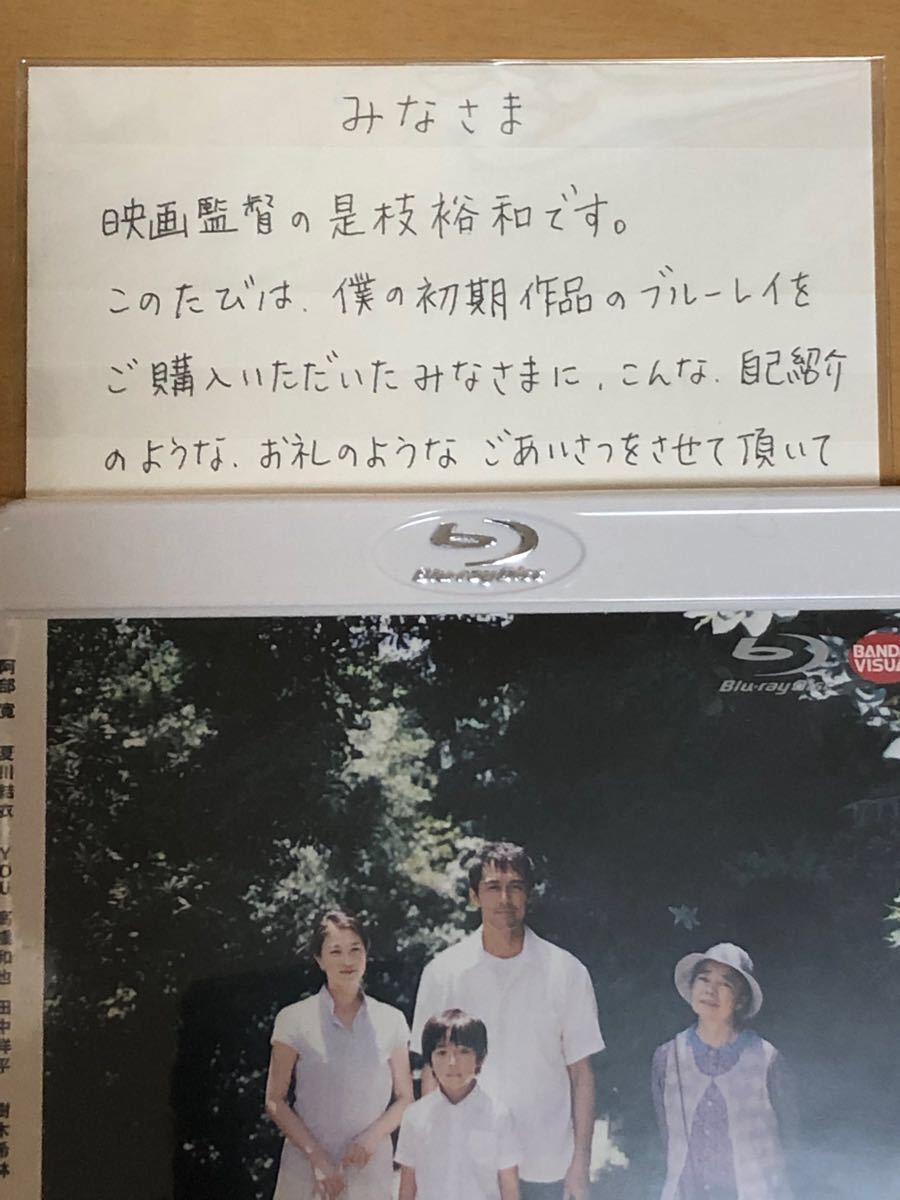 みなさま
映画監督の是枝裕和です。
このたびは、僕の初期作品のブルーレイを
ご購入いただいたみなさまに、こんな、自己紹介
のような、お礼のような ごあいさつをさせて頂いて
Blu-ray Disc
Blu-ray Disc
BANDA
VISUA
阿部 寛 夏川結衣 YOU 高橋和也 田中祥平 樹木希林